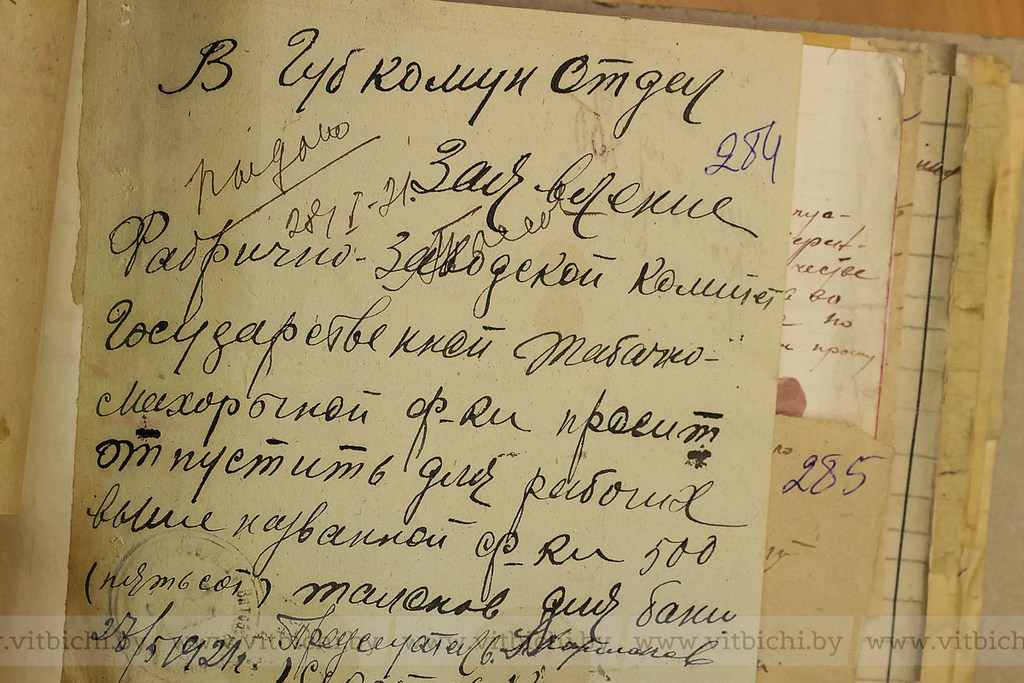 В Губкомун Отдел
284
Заявление
28/I-21.
Фабрично-Заводской Комитет
Государственной Табачно-
махорычной ф-ки просит
отпустить для рабочих
выше названной ф-ки 500
(пятьсот) талонов для бани
Председатель
285
www.vitbichi.by www.vitbichi.by www.vitbichi.by www.vitbichi.by